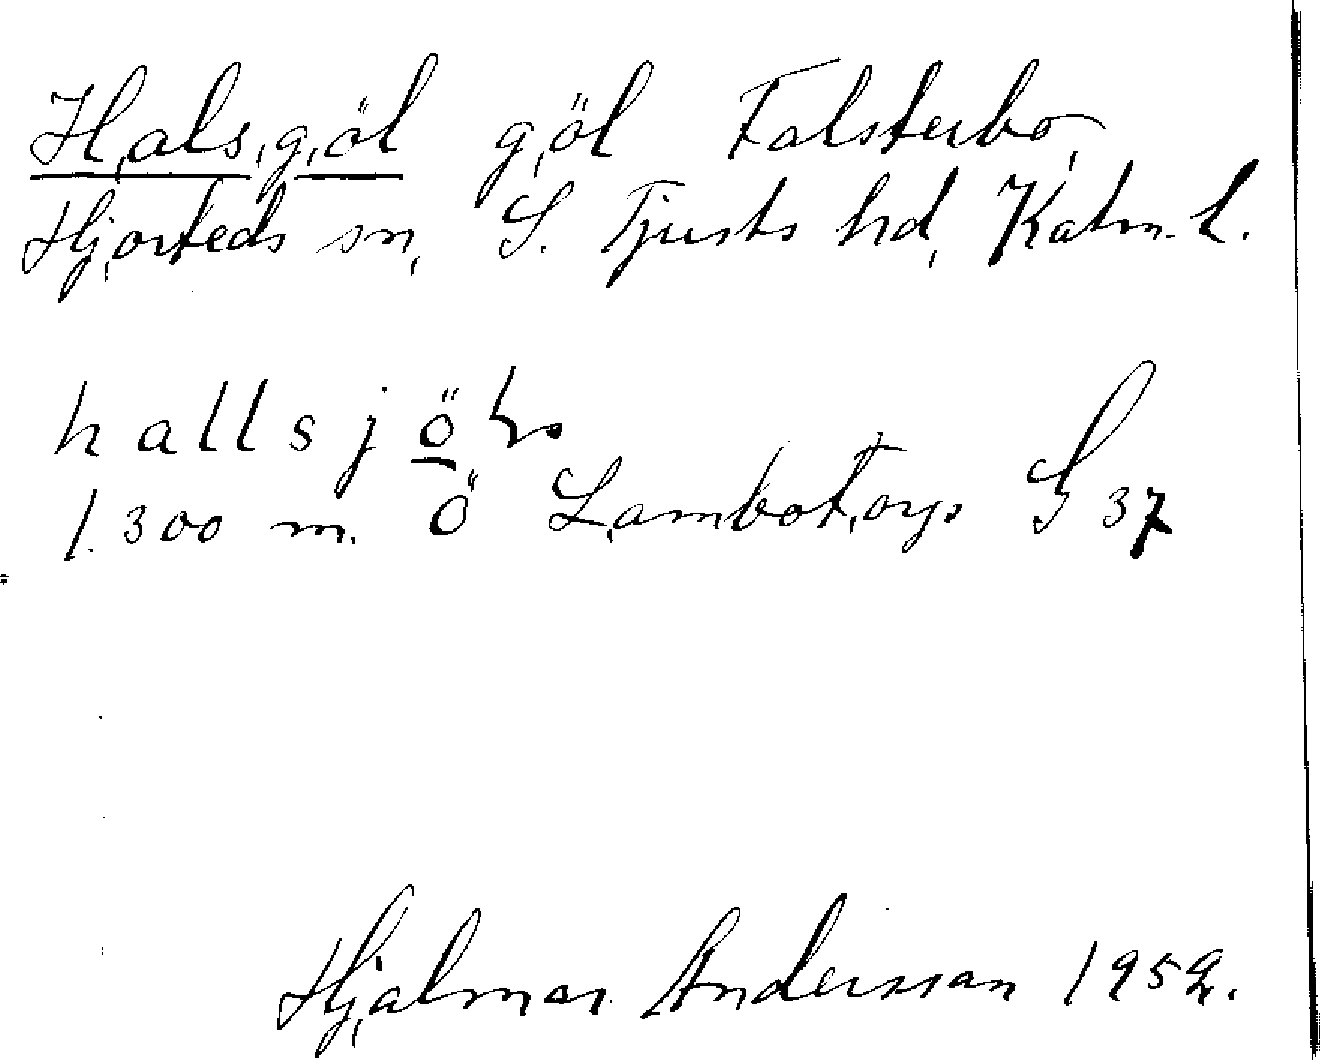 Halsgöl göl Falsterbo,
Hjorteds sn, S. Tjusts hd, Kalm. L.
hallsjö
1.300 m. Ö Lambotorp S 37
Hjalmar Andersson 1952.